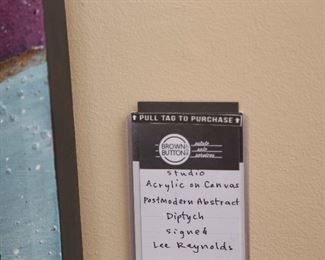 ⬆ PULL TAG TO PURCHASE ⬆
BROWN BUTTON
estate
sale
services
Studio
Acrylic on Canvas
Postmodern Abstract
Diptych
Signed
Lee Reynolds